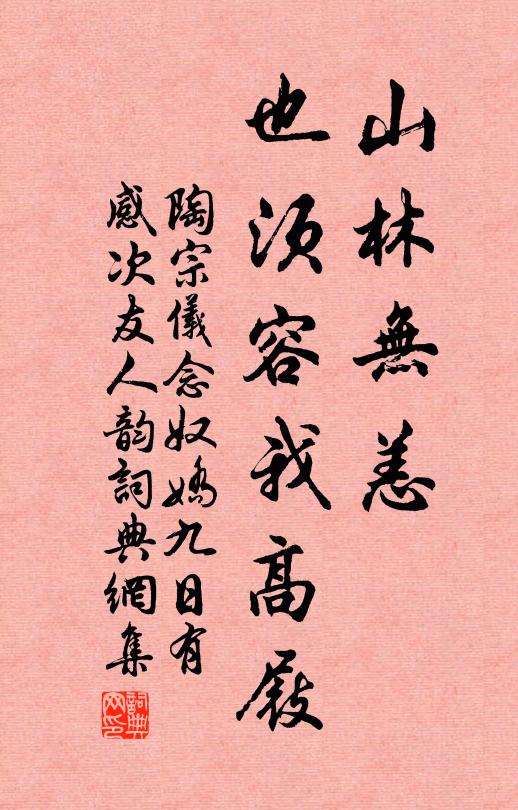 山林無恙
也須容我高屐
陶宗儀念奴嬌九日有
感次友人韵詞典網集
詞典
网印